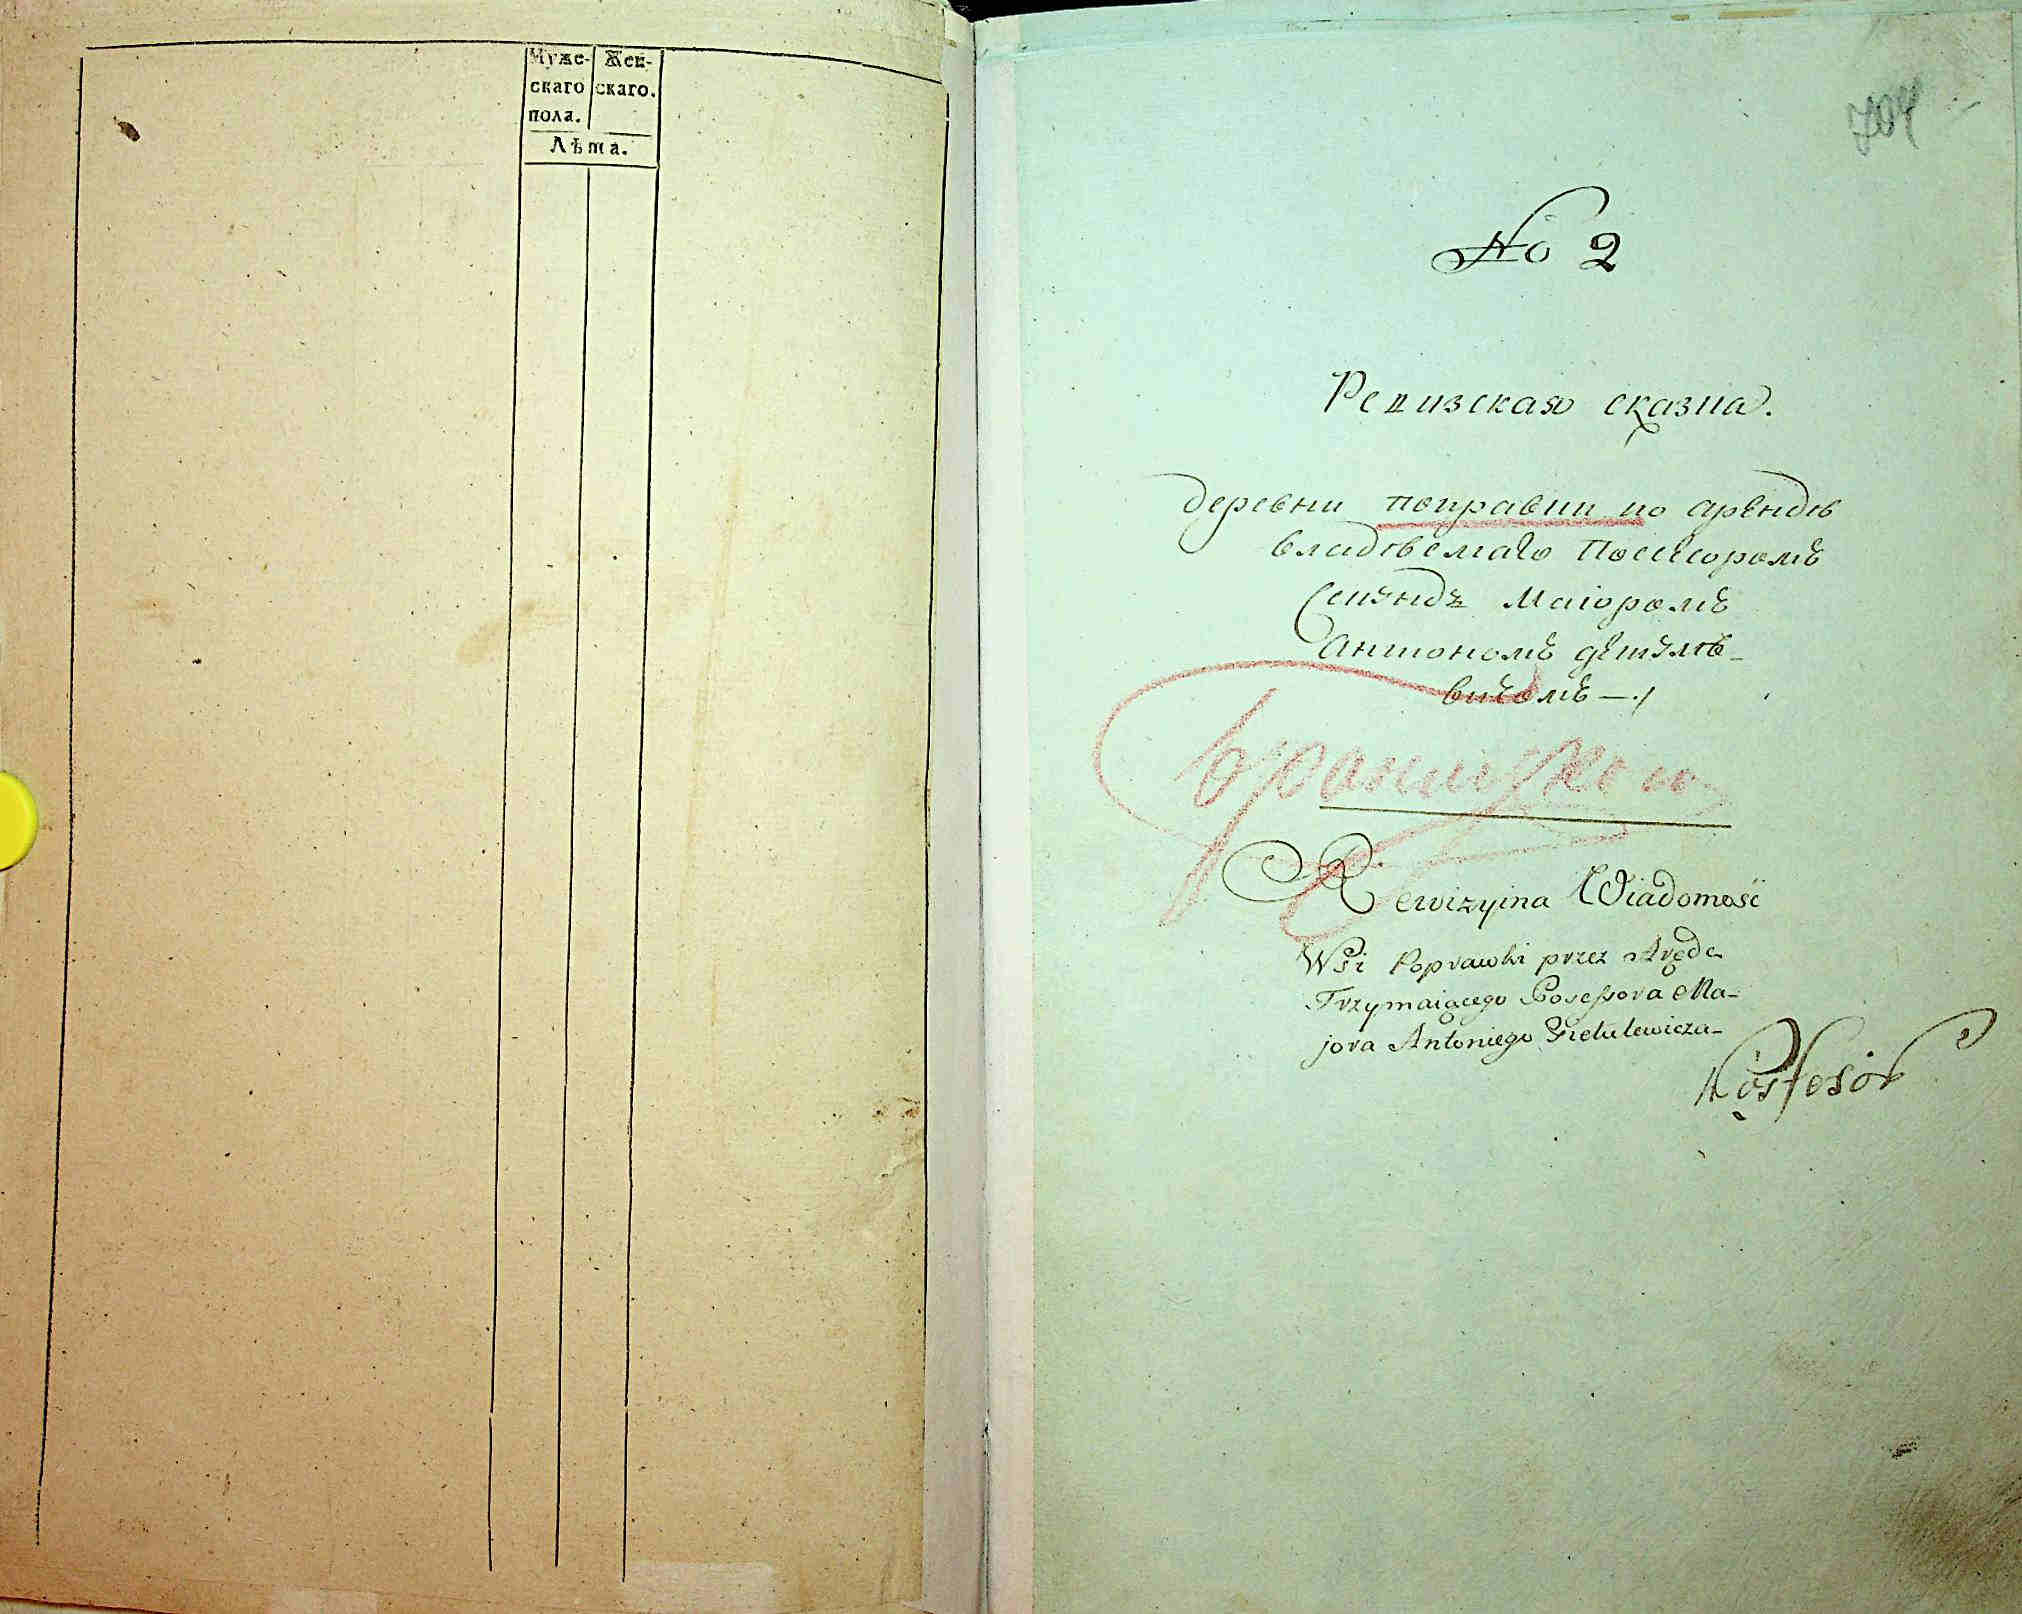 Муже- Жен-
скаго скаго.
пола.
Лѣта.
704
No 2
Ревизская сказка.
деревни поправки по арендѣ
владѣемаго Посессоромъ
Секундъ Маіоромъ
Антономъ гетулѣ-
вичомъ
Браницкой
Rewizyina Wiadomość
Wsi Poprawki przez Arędę
Trzymaiącego Possessora Ma-
jora Antoniego Gietulewicza